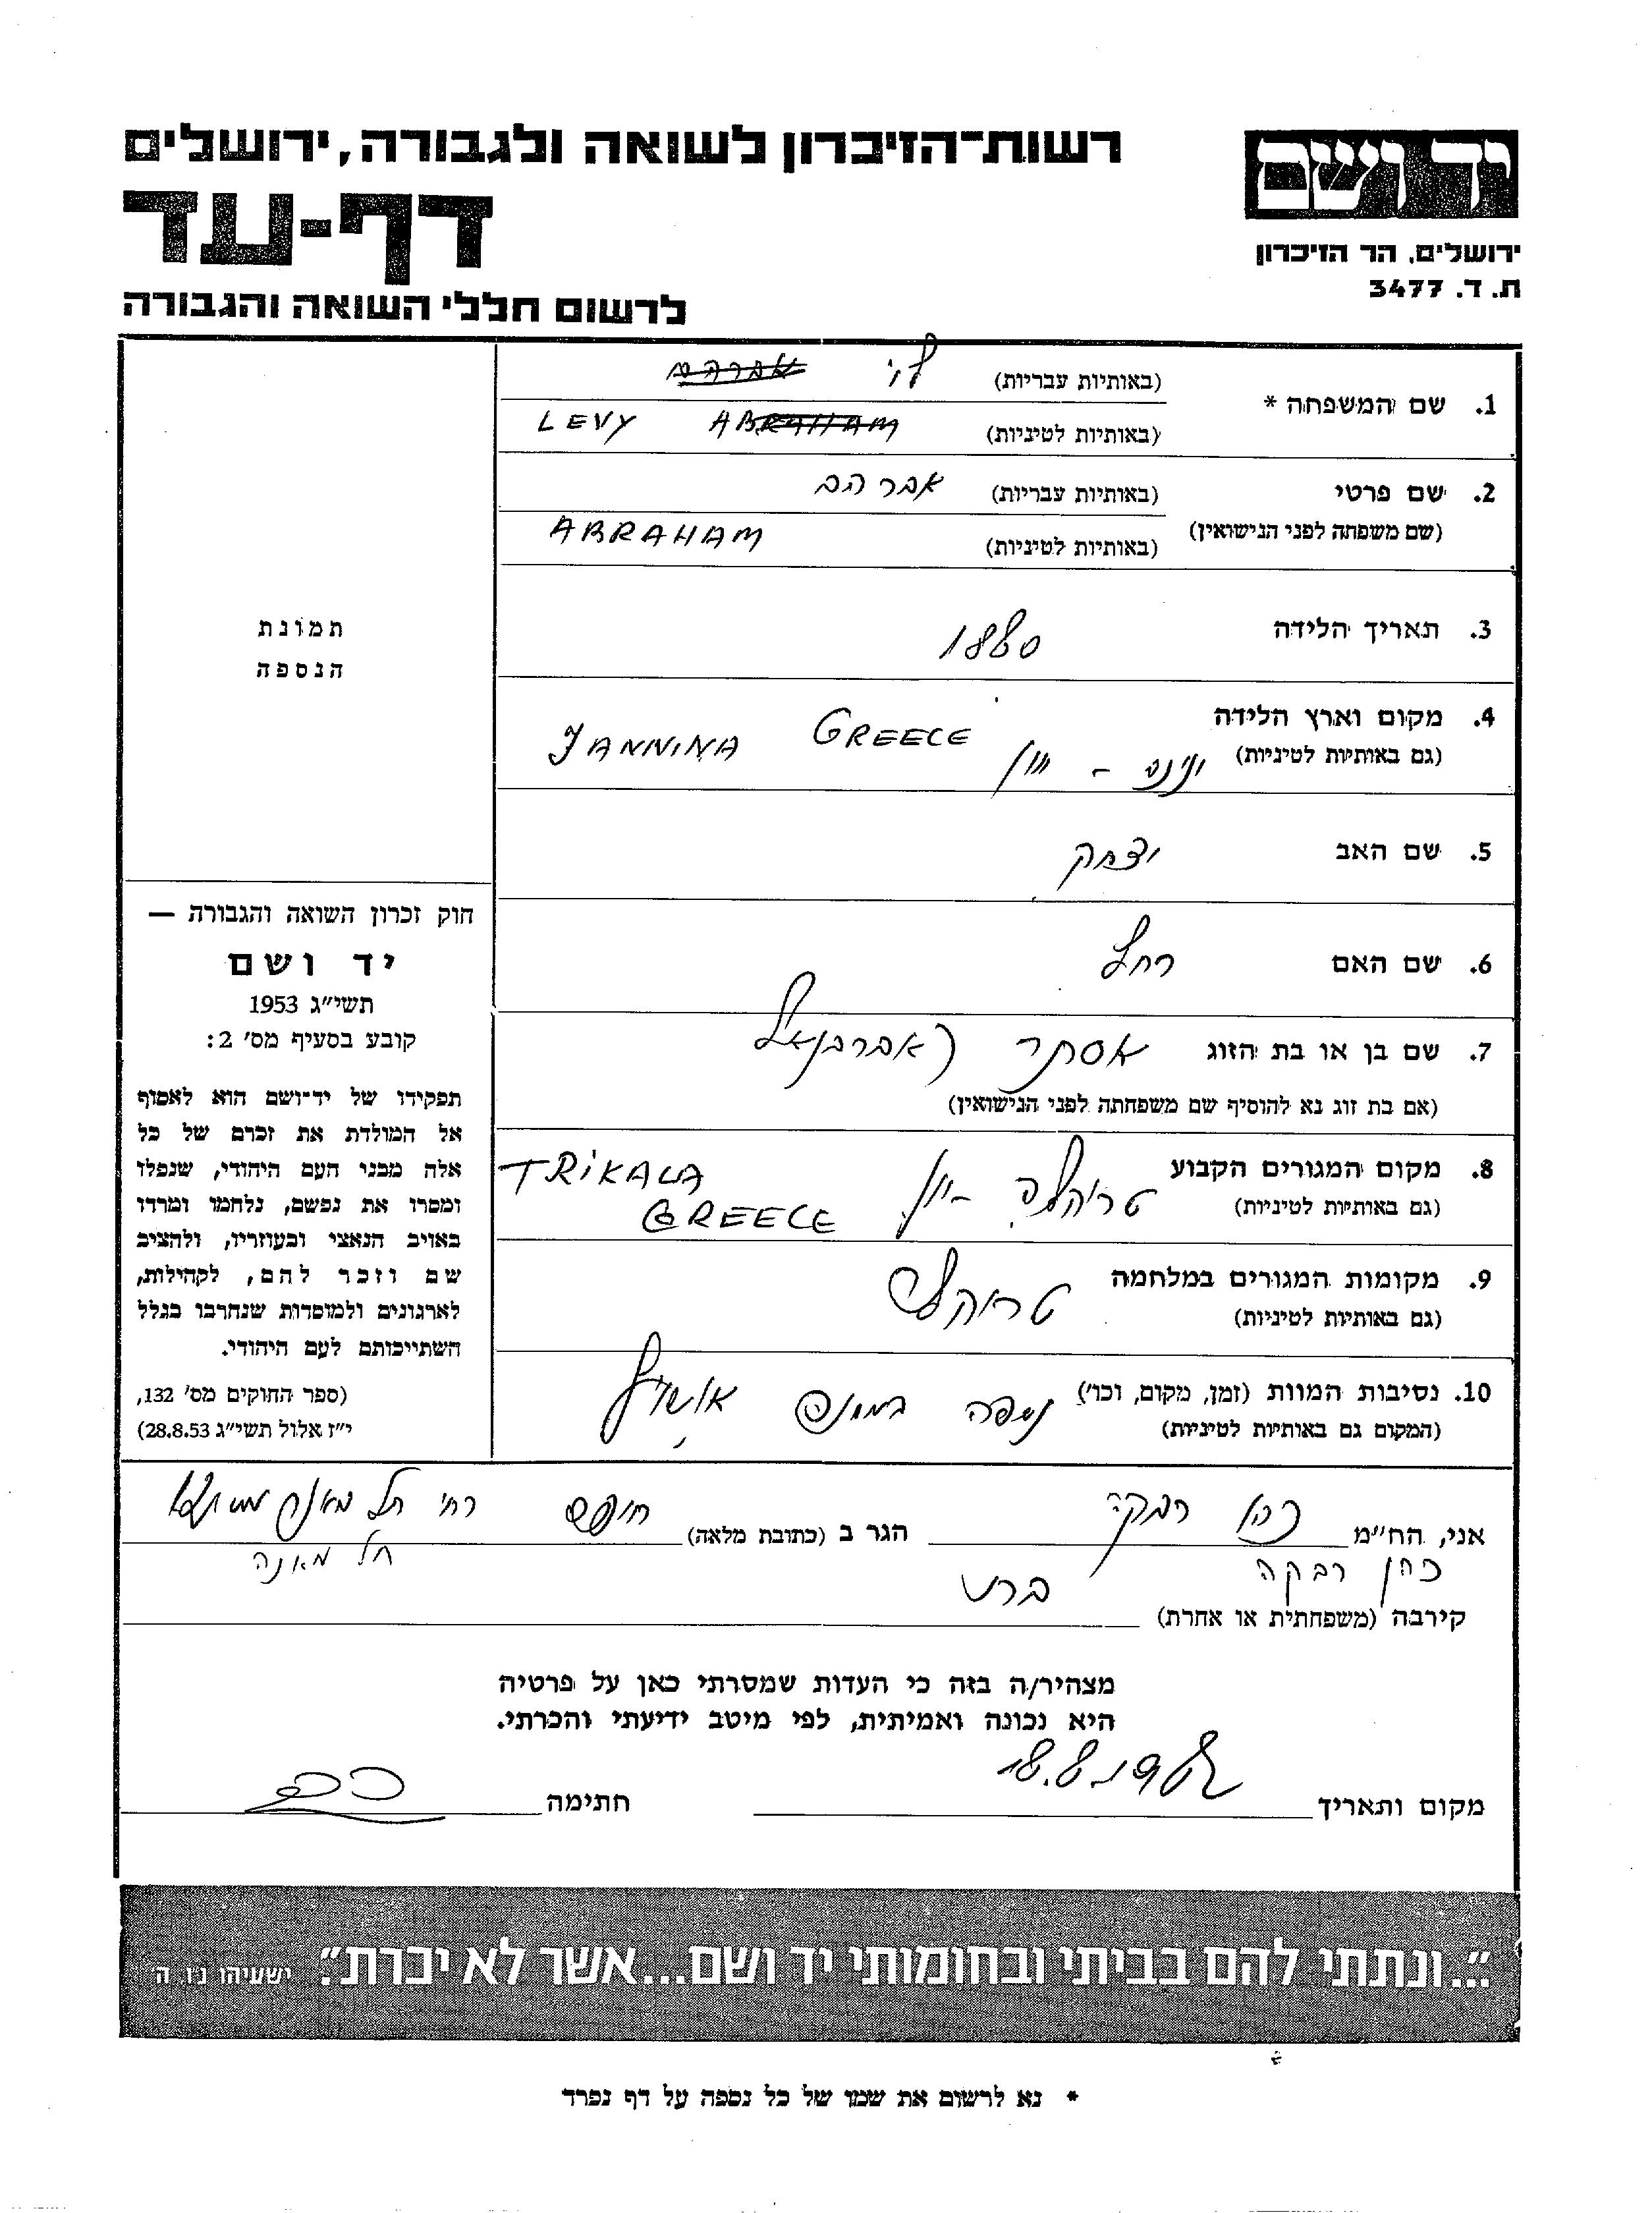 רשות־הזיכרון לשואה ולגבורה, ירושלים
דף-עד
לרשום חללי השואה והגבורה
יד ושם
ירושלים, הר הזיכרון
ת. ד. 3477
1. שם המשפחה *
(באותיות עבריות) לוי אברהם
(באותיות לטיניות) LEVY ABRAHAM
2. שם פרטי
(שם משפחה לפני הנישואין)
(באותיות עבריות) אברהם
(באותיות לטיניות) ABRAHAM
3. תאריך הלידה 1880
4. מקום וארץ הלידה
(גם באותיות לטיניות) - יוון JANNINA GREECE
5. שם האב יצחק
6. שם האם רחל
7. שם בן או בת הזוג אסתר (אברבנאל
(אם בת זוג נא להוסיף שם משפחתה לפני הנישואין)
8. מקום המגורים הקבוע
(גם באותיות לטיניות) טריקלה - יוון TRIKALA
GREECE
9. מקומות המגורים במלחמה
(גם באותיות לטיניות) טריקלה
10. נסיבות המוות (זמן, מקום, וכו')
(המקום גם באותיות לטיניות) נספה במחנה אושויץ
תמונת
הנספה
חוק זכרון השואה והגבורה —
יד ושם
תשי״ג 1953
קובע בסעיף מס׳ 2:
תפקידו של יד־ושם הוא לאסוף
אל המולדת את זכרם של כל
אלה מבני העם היהודי, שנפלו
ומסרו את נפשם, נלחמו ומרדו
באויב הנאצי ובעוזריו, ולהציב
שם וזכר להם, לקהילות,
לארגונים ולמוסדות שנחרבו בגלל
השתייכותם לעם היהודי.
(ספר החוקים מס׳ 132,
י״ז אלול תשי״ג 28.8.53)
אני, הח״מ כהן רבקה הגר ב (כתובת מלאה) רח׳ תל מאנה
כהן רבקה תל מאנה
קירבה (משפחתית או אחרת)
מצהיר/ה בזה כי העדות שמסרתי כאן על פרטיה
היא נכונה ואמיתית, לפי מיטב ידיעתי והכרתי.
מקום ותאריך 18.8.1982 חתימה
״...ונתתי להם בביתי ובחומותי יד ושם...אשר לא יכרת״. ישעיהו נ״ו, ה׳
* נא לרשום את שמו של כל נספה על דף נפרד